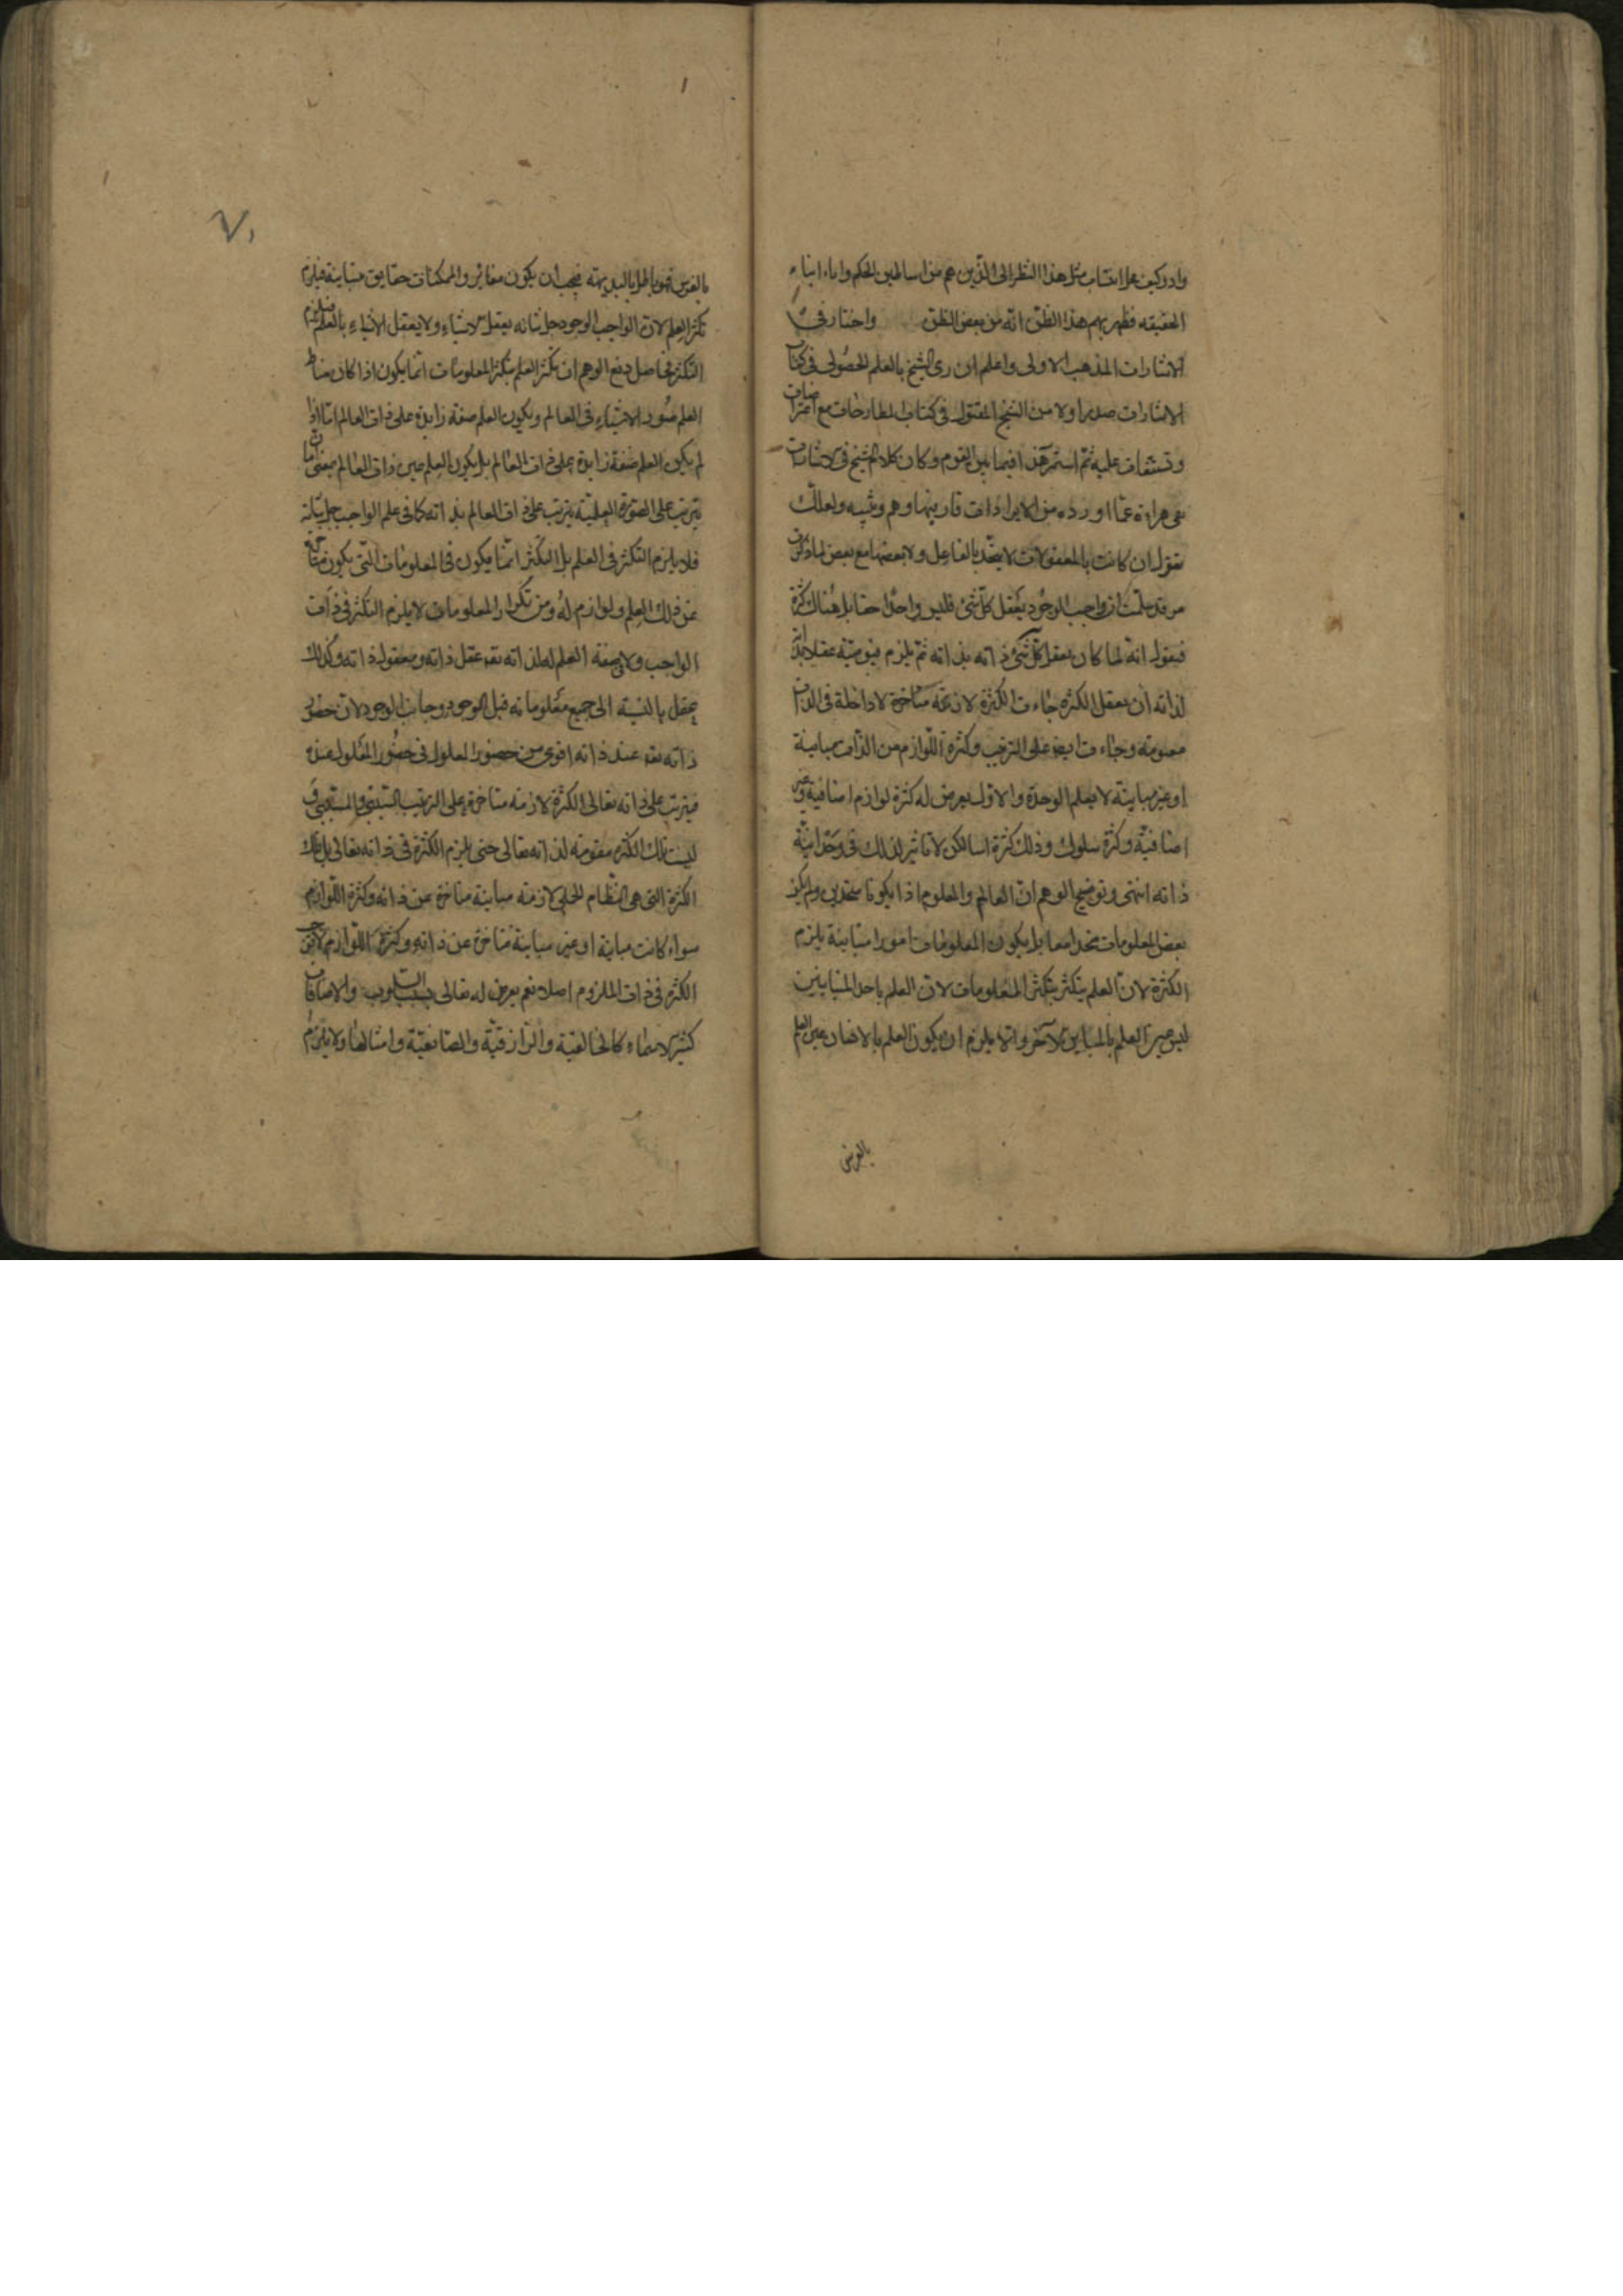 وادركيف محل انتساب مثل هذا النظر الى الذين هم من اساطين الحكم واباء ابناء
الحقيقه فظهر بهم هذا الظن انه من بعض الظن واختار في
الاشارات المذهب الاولى واعلم ان رى الشيخ بالعلم الحصولى فى كتاب
الاشارات صدر اولا من الشيخ المقتول فى كتاب المطارحات مع اعتراضات
وتشنيعات عليه ثم استمر هذا فيما بين القوم وكان كلام الشيخ فى الاشارات
عما اورده من الايرادات قال فيها وهم وتنبيه ولعلك
تقول ان كانت بالمعقولات لا يتحد بالعاقل ولا بعضها مع بعض لما ذكرت
من قد سلمت ان واجب الوجود يعقل كل شئ فليس واحدا حقا بل هناك كثرة
فيقول انه لما كان يعقل كل شئ ذاته بذاته ثم يلزم قيوميته عقلا بذاته
لذاته ان يعقل الكثره جاءت الكثرة لازمة متاخرة لا داخلة فى الذات
مقومته وجاءت ايضا على الترتيب وكثرة اللوازم من الذات مباينة
او غير مباينة لا يعلم الوحدة والاول يعرض له كثرة لوازم اضافية وغير
اضافية وكثرة سلوك وذلك كثرة اسما لكن لا تاثير لذلك فى وحدانية
ذاته انتهى وتوضيح الوهم ان العالم والمعلوم اذا يكونا متحدين ولم يكن
بعض المعلومات متحدا معا بل يكون المعلومات امورا متباينة يلزم
الكثرة لان العلم يتكثر بتكثر المعلومات لان العلم باحد المتباينين
ليس عين العلم بالمباين الآخر والا يلزم ان يكون العلم بالانسان عين العلم
بالفرس
بالفرس فهو باطل بالبديهته فيجب ان يكون مغايرا والممكنات حقايق متباينة فيلزم
تكثر العلم لان الواجب الوجود جل شانه يعقل الاشياء ولا يعقل الاشياء بالعلم فيلزم
التكثر فحاصل دفع الوهم ان تكثر العلم بتكثر المعلومات انما يكون اذا كان مناط
العلم صور الاشياء فى العالم ويكون العلم صفة زايدة على ذات العالم اما اذا
لم يكن العلم صفة زايدة على ذات العالم بل يكون العلم عين ذات العالم بمعنى ان ما
يترتب على الصورة العلمية يترتب على ذات العالم بذاته كما فى علم الواجب جل شانه
فلا يلزم التكثر فى العلم بل التكثر انما يكون فى المعلومات التى يكون متاخرة
عن ذلك العلم ولوازم له ومن تكرار المعلومات لا يلزم التكثر فى ذات
الواجب ولا فى صفة العلم له لذاته تعه عقل ذاته ومعقول ذاته وكذلك
يعقل بالنسبة الى جميع معلوماته قبل الوجود وجانب الوجود لان حضور
ذاته تعه عند ذاته اقوى من حضور المعلول فى حضور المعلول عنده
فيترتب على ذاته تعالى الكثرة لازمته متاخرة على الترتيب السببى والمسببى و
ليست تلك الكثره مقومته لذاته تعالى حتى يلزم الكثرة فى ذاته تعالى بل تلك
الكثرة التى هى النظام الجملى لازمته مباينة متاخرة عن ذاته وكثرة اللوازم
سواء كانت مباينة او غير مباينة متاخرة عن ذاته وكثرة اللوازم لا توجب
الكثره فى ذات الملزوم اصلا نعم يعرض له تعالى بسبب السلوب والاضافات
كثير الاسماء كالخالقية والرازقية والصانعية وامثالها ولا يلزم